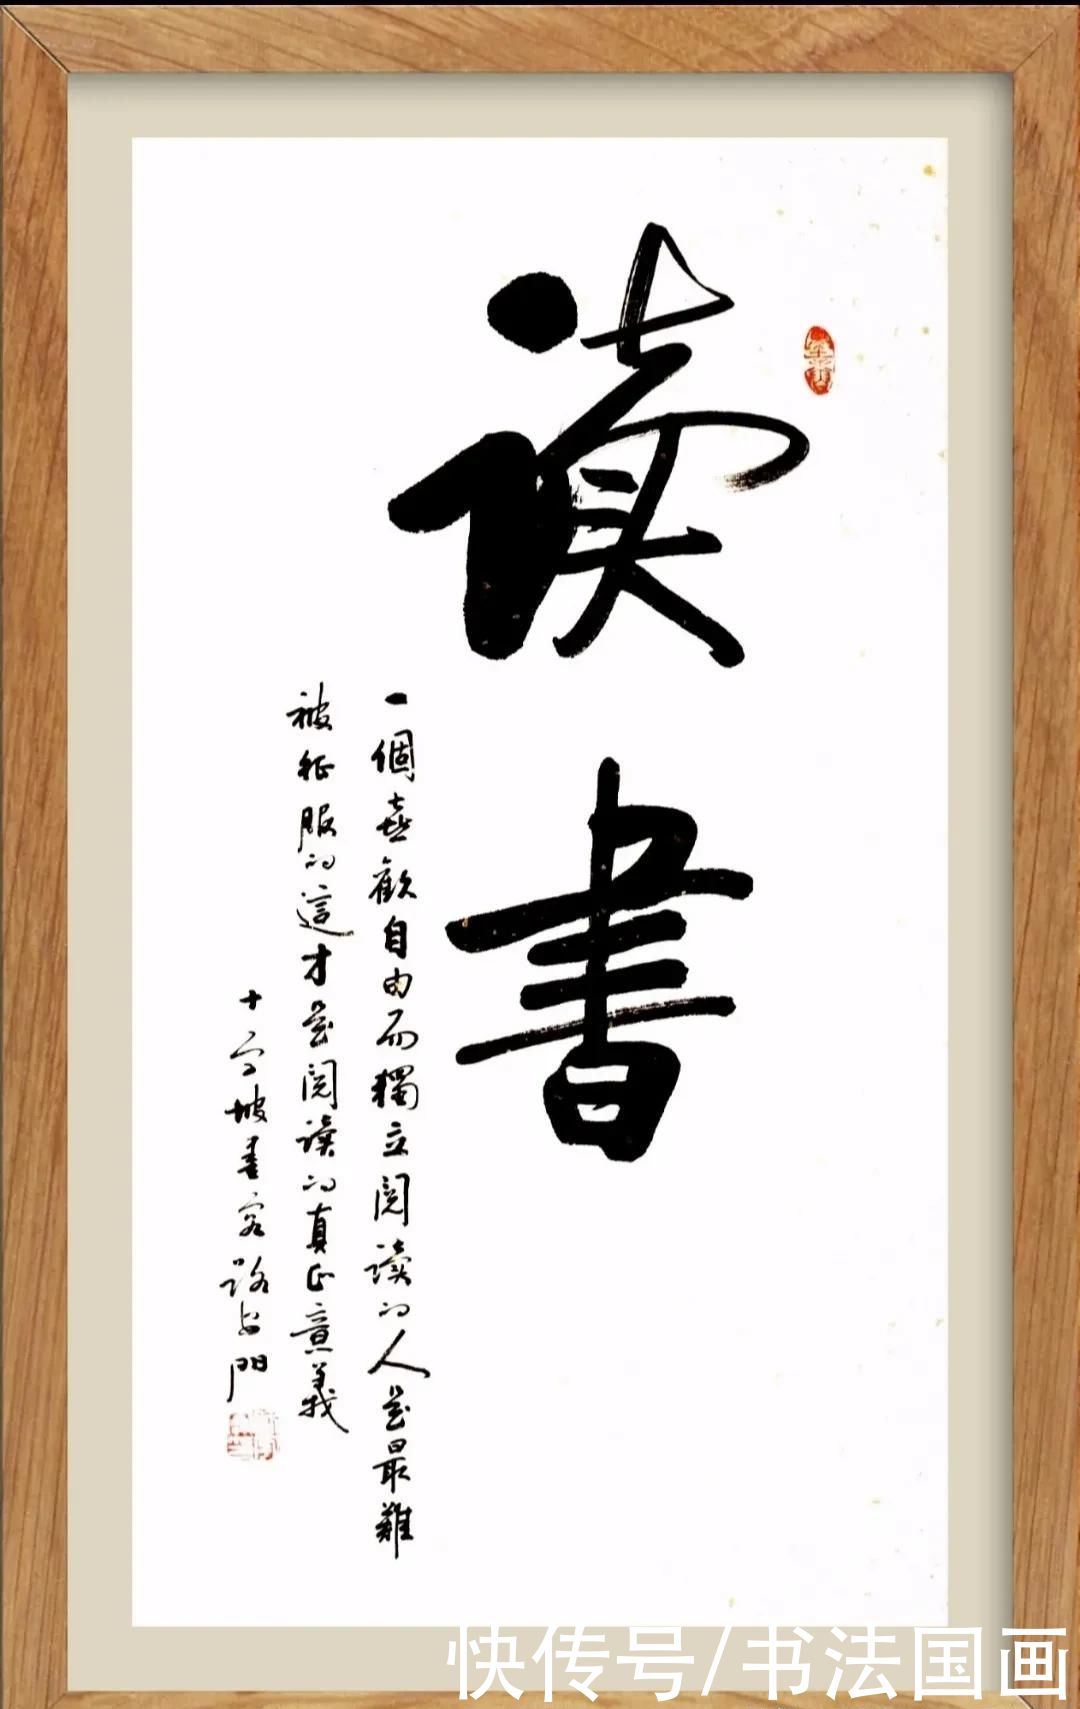 读書
一個喜歡自由而獨立閱读的人是最難
被征服的這才是閱读的真正意義
十字坡書客路安門
快传号/书法国画